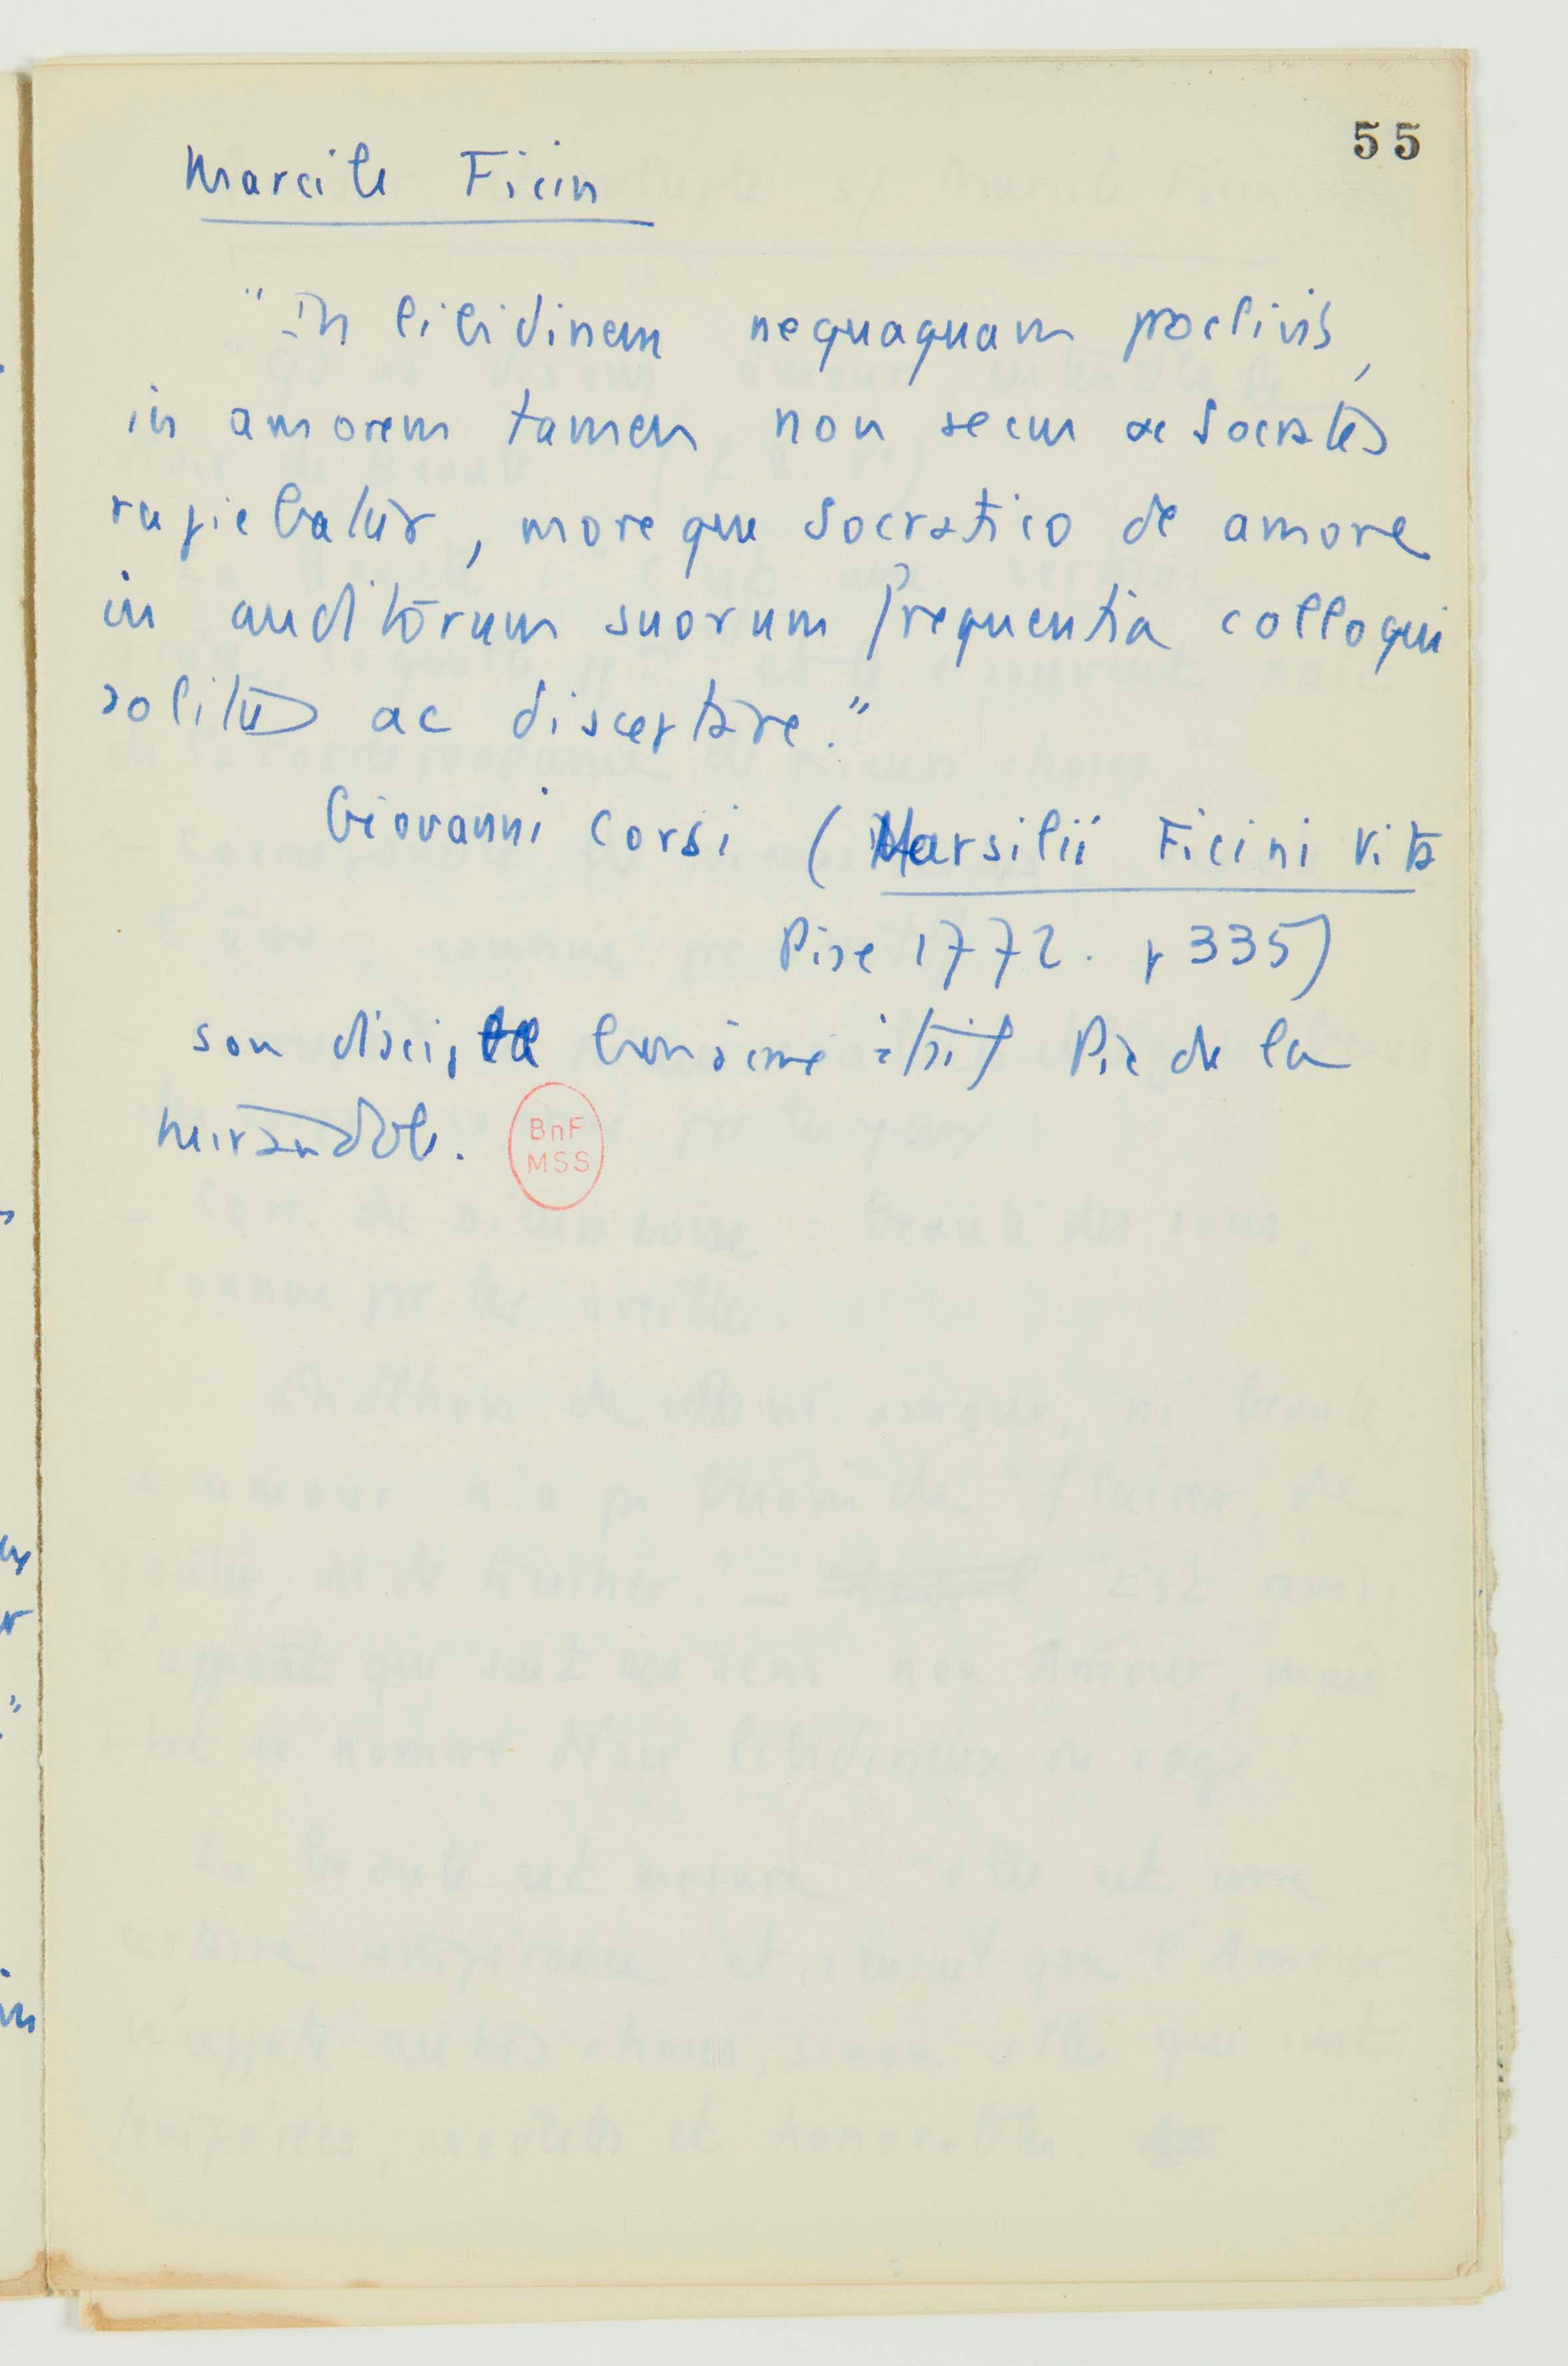 55
Marcile Ficin
"In libidinem nequaquam proclivis,
in amorem tamen non secus ac Socrates
rapiebatur, more que Socratico de amore
in auditorum suorum frequentia colloqui
solitus ac disceptare."
Giovanni Corsi (Marsilii Ficini vita
Pise 1772. p 335)
son disciple bien aimé était Pic de la
Mirandole.
BnF
MSS